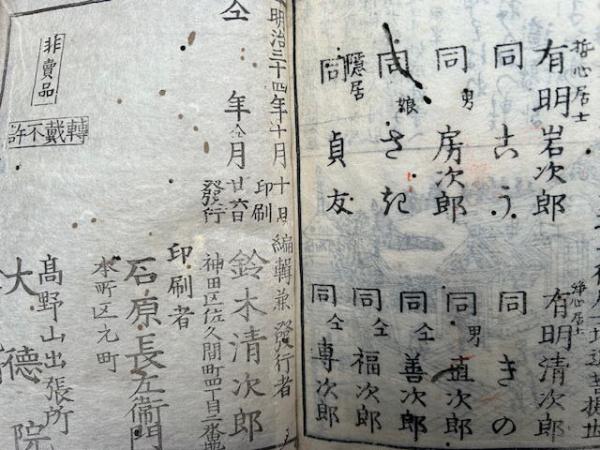 哲心居士
有明岩次郎
同 こう
同男 房次郎
同娘 さき
隠居
同 貞友
有明清次郎
同 きの
同男 直次郎
同仝 善次郎
同仝 福次郎
同仝 專次郎
明治三十四年十月十日印刷
仝 年仝月廿六日發行
編輯兼發行者
鈴木清次郎
神田区佐久間町四丁目
印刷者
石原長左衛門
本町区元町
高野山出張所
大德院
非賣品
轉載不許